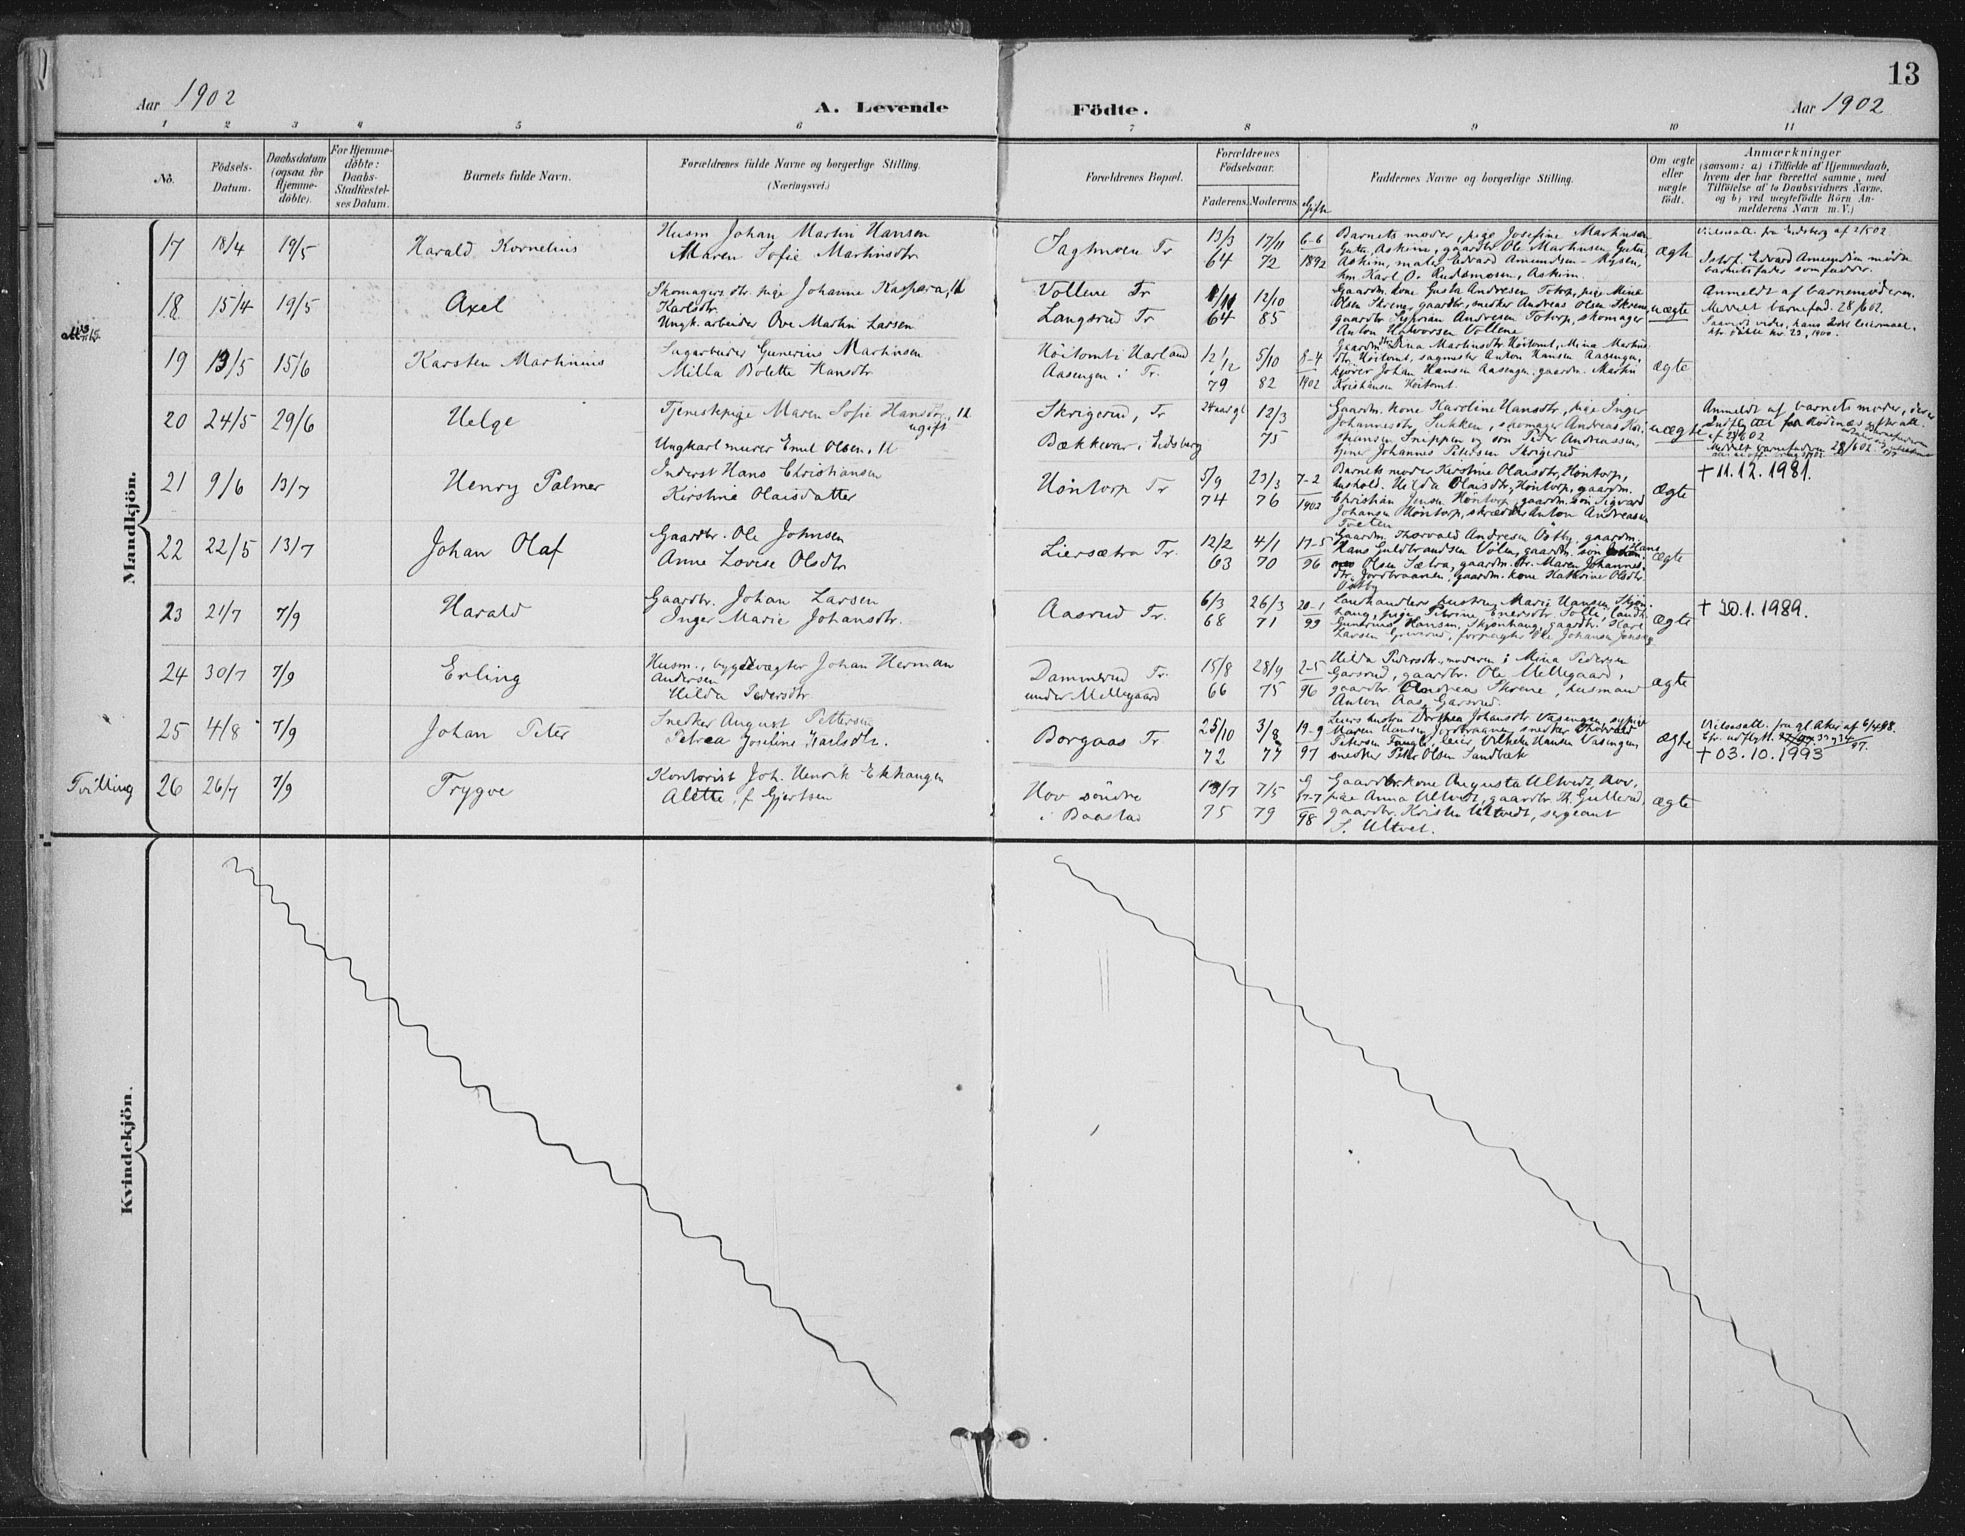 13
Aar 1902
A. Levende Födte.
Aar 1902
1 2 3 4 5 6 7 8 9 10 11
No.
Födsels-Datum.
Daabsdatum (ogsaa for Hjemmedöbte).
For Hjemmedöbte: Daabs-Stadfæstelses Datum.
Barnets fulde Navn.
Forældrenes fulde Navne og borgerlige Stilling.
(Næringsvei.)
Forældrenes Bopæl.
Forældrenes Födselsaar.
Faderens. Moderens.
Gifte
Faddernes Navne og borgerlige Stilling.
Om ægte eller uægte födt.
Anmærkninger
(saasom: a) i Tilfælde af Hjemmedaab, hvem der har forrettet samme, med Tilföielse af to Daabsvidners Navne, og b) ved uægtefödte Börn Anmelderens Navn m. V.)
Mandkjön.
17 18/4 19/5 Harald Kornelius
Husm Johan Martin Hansen
Maren Sofie Martinsdtr
Sagmoen Tr
13/3 64 17/11 72 6-6 1892
Barnets moder, pige Josefine Martinsen
Guter, Askim, gaardbr Ole Martinsen Guter,
Askim, maler Edvard Amundsen Mysen,
hm. Karl O. Rudsmosen, Askim.
ægte
18 15/4 19/5 Axel
Skomagers dtr pige Johanne Kaspara, U
Karlsdtr.
Ungk. arbeider Ove Martin Larsen
Vollene Tr
Langsrud Tr
1/11 64 12/10 85
Gaardm. kone Gusta Andresen Totorp, pige Mina
Olsen Skrene, gaardbr, snedker Andreas Olsen Skrene,
gaardbr Syprian Andresen Totorp, skomager
Anton Halvorsen Vollene
uægte
Anmeldt af barnemoderen.
Meddelt barnefad. 28/6 02.
19 13/5 15/6 Karsten Martinius
Sagarbeider Gunerius Martinsen
Milla Bolette Hansdtr
Höitomt i Harland
Aasengen i Tr.
12/12 79 5/10 82 8-4 1902
dtr. Höitomt, sagmester Anton Hansen Aasengen,
kjörer Johan Hansen Aasengen, gaardm. Martin
Kristiansen Höitomt.
ægte
20 24/5 29/6 Helge
Tjenestepige Maren Sofie Hansdtr, U
ugift
Ungkarl murer Emil Olsen, U
Skrigerud, Tr
Bækkevar i Eidsberg
24 aar gl 12/3 75
Gaardm. kone Karoline Hansdtr, pige Inger
Johannesdtr Sukken, skomager Andreas Kri-
stiansen Sneppen og son Peder Andreassen,
Giner Johannes Petersen Skrigerud
uægte
Anmeldt af barnets moder, der er
21 9/6 13/7 Henry Palmer
Inderst Hans Christiansen
Kirstine Olaisdatter
Höntorp Tr
5/9 74 23/3 76 7-2 1902
Barnets moder Kirstine Olaisdtr, Höntorp,
hushold. Hilda Olaisdtr, Höntorp, gaardm.
Christian Jensen Höntorp, gaardm. sön Sigvard
Johansen Höntorp, skrædder Anton Andreasen
Tveten
ægte
+ 11.12.1981.
22 22/5 13/7 Johan Olaf
Gaardbr. Ole Johnsen
Anne Lovise Olsdtr
Liersætra Tr.
12/2 63 4/1 70 17-5 96
Gaardm. Thorvald Andresen Östby, gaardm.
Hans Guldbrandsen Volen, gaardm. sön Hans
Olsen Sætra, gaardm. dtr. Maren Johannes-
dtr. Jordbraanen, gaardm. kone Kathrine Olsdtr.
Östby
ægte
23 21/7 7/9 Harald
Gaardbr. Johan Larsen
Inger Marie Johansdtr.
Aasrud Tr.
6/3 68 26/3 71 20-1 99
Landhandlers hustru Marie Hansen Skjön-
haug, pige Petrine Enersdtr Solli, landh.
Gunerius Hansen, Skjönhaug, gaardbr. Karl
Larsen Greverud, forpagter Ole Johansen Jonsrg
ægte
+ 30.1.1989.
24 30/7 7/9 Erling
Husm., bygdevægter Johan Herman
Andersen
Hilda Pedersdtr
Dammerud Tr.
under Mellegaard
15/8 66 28/9 75 2-5 96
Hilda Pedersdtr, moderen; Mina Pedersen
Garsrud, gaardbr. Ole Mellegaard,
gaardbr. Andreas Skrene, husmand
Anton Aas, Garsrud.
ægte
25 4/8 7/9 Johan Peter
Snedker August Pettersen
Petrea Josefine Karlsdtr.
Borgaas Tr
25/10 72 3/8 77 19-9 97
Leiers hustru Dorthea Johansdtr Vasengen, sypige
Maren Hansen Jordbraanen, snedker Thorvald
Petersen Fangli, leier Vilhelm Hansen Vasengen,
snedker Peter Olsen Sandbæk
ægte
+ 03.10.1993
Tvilling 26 26/7 7/9 Trygve
Kontorist Joh. Henrik Ekhaugen
Alette, f. Gjertsen
Hov söndre
i Baastad
13/7 75 7/5 79 g 17-7 98
Gaardbr. kone Augusta Ultvedt, Hov,
pige Anna Ultvedt, gaardbr. Th. Gullerud,
gaardbr. Kristen Ultvedt, sergeant
S. Ultvet.
ægte
Kvindekjön.